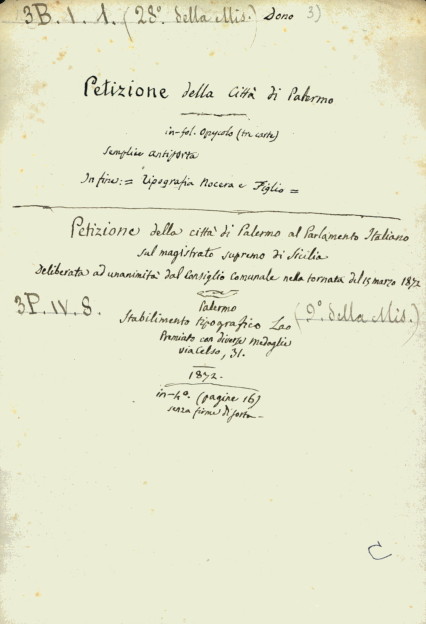 3B. I. 1. (28°. della Mis.) Dono 3)
Petizione della Città di Palermo
in-fol. Opuscolo (tre carte)
Semplice antiporta
In fine: = Tipografia Nocera e Figlio =
Petizione della città di Palermo al Parlamento Italiano
sul magistrato supremo di Sicilia
deliberata ad unanimità dal Consiglio Comunale nella tornata del 15 marzo 1872
3P. IV. 8. (9°. della Mis.)
Palermo
Stabilimento tipografico Lao
Premiato con diverse medaglie
via Celso, 31.
1872.
in-4°. (pagine 16)
senza firme di sorta.